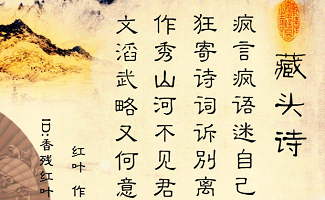 藏头诗
疯言疯语迷自己
狂寄诗词诉别离
作秀山河不见君
文滔武略又何意
红叶 作
ID:香残红叶